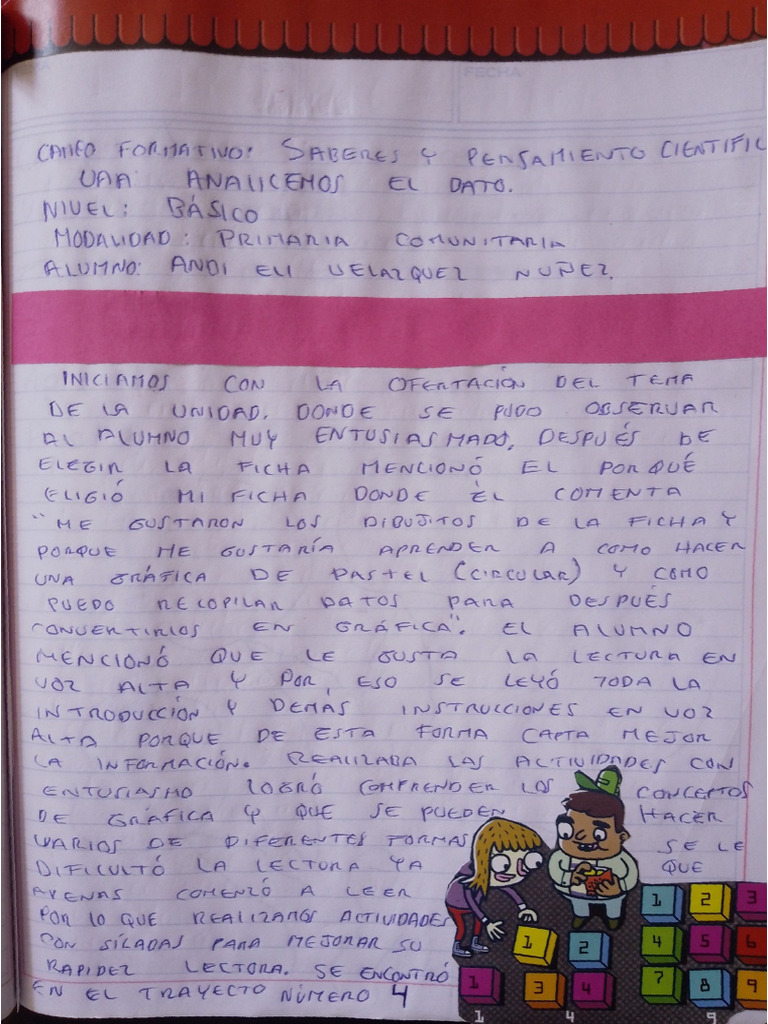 FECHA
CAMPO FORMATIVO: SABERES Y PENSAMIENTO CIENTIFIC
UAA: ANALICEMOS EL DATO.
NIVEL: BÁSICO
MODALIDAD: PRIMARIA COMUNITARIA
ALUMNO: ANDI ELI VELAZQUEZ NUÑEZ.
INICIAMOS CON LA OFERTACIÓN DEL TEMA
DE LA UNIDAD. DONDE SE PUDO OBSERVAR
AL ALUMNO MUY ENTUSIASMADO, DESPUÉS DE
ELEGIR LA FICHA MENCIONÓ EL PORQUÉ
ELIGIÓ MI FICHA DONDE ÉL COMENTA
"ME GUSTARON LOS DIBUJITOS DE LA FICHA Y
PORQUE ME GUSTARÍA APRENDER A COMO HACER
UNA GRÁFICA DE PASTEL (CIRCULAR) Y COMO
PUEDO RECOPILAR DATOS PARA DESPUÉS
CONVERTIRLOS EN GRÁFICA". EL ALUMNO
MENCIONÓ QUE LE GUSTA LA LECTURA EN
VOZ ALTA Y POR ESO SE LEYÓ TODA LA
INTRODUCCIÓN Y DEMÁS INSTRUCCIONES EN VOZ
ALTA PORQUE DE ESTA FORMA CAPTA MEJOR
LA INFORMACIÓN. REALIZABA LAS ACTIVIDADES CON
ENTUSIASMO LOGRÓ COMPRENDER LOS CONCEPTOS
DE GRÁFICA Y QUE SE PUEDEN HACER
VARIOS DE DIFERENTES FORMAS SE LE
DIFICULTÓ LA LECTURA YA QUE
APENAS COMENZÓ A LEER
POR LO QUE REALIZAMOS ACTIVIDADES
CON SÍLABAS PARA MEJORAR SU
RAPIDEZ LECTORA. SE ENCONTRÓ
EN EL TRAYECTO NÚMERO 4
1 2 3
1 2 4 5 6
1 3 4 7 8 9
1 4 9